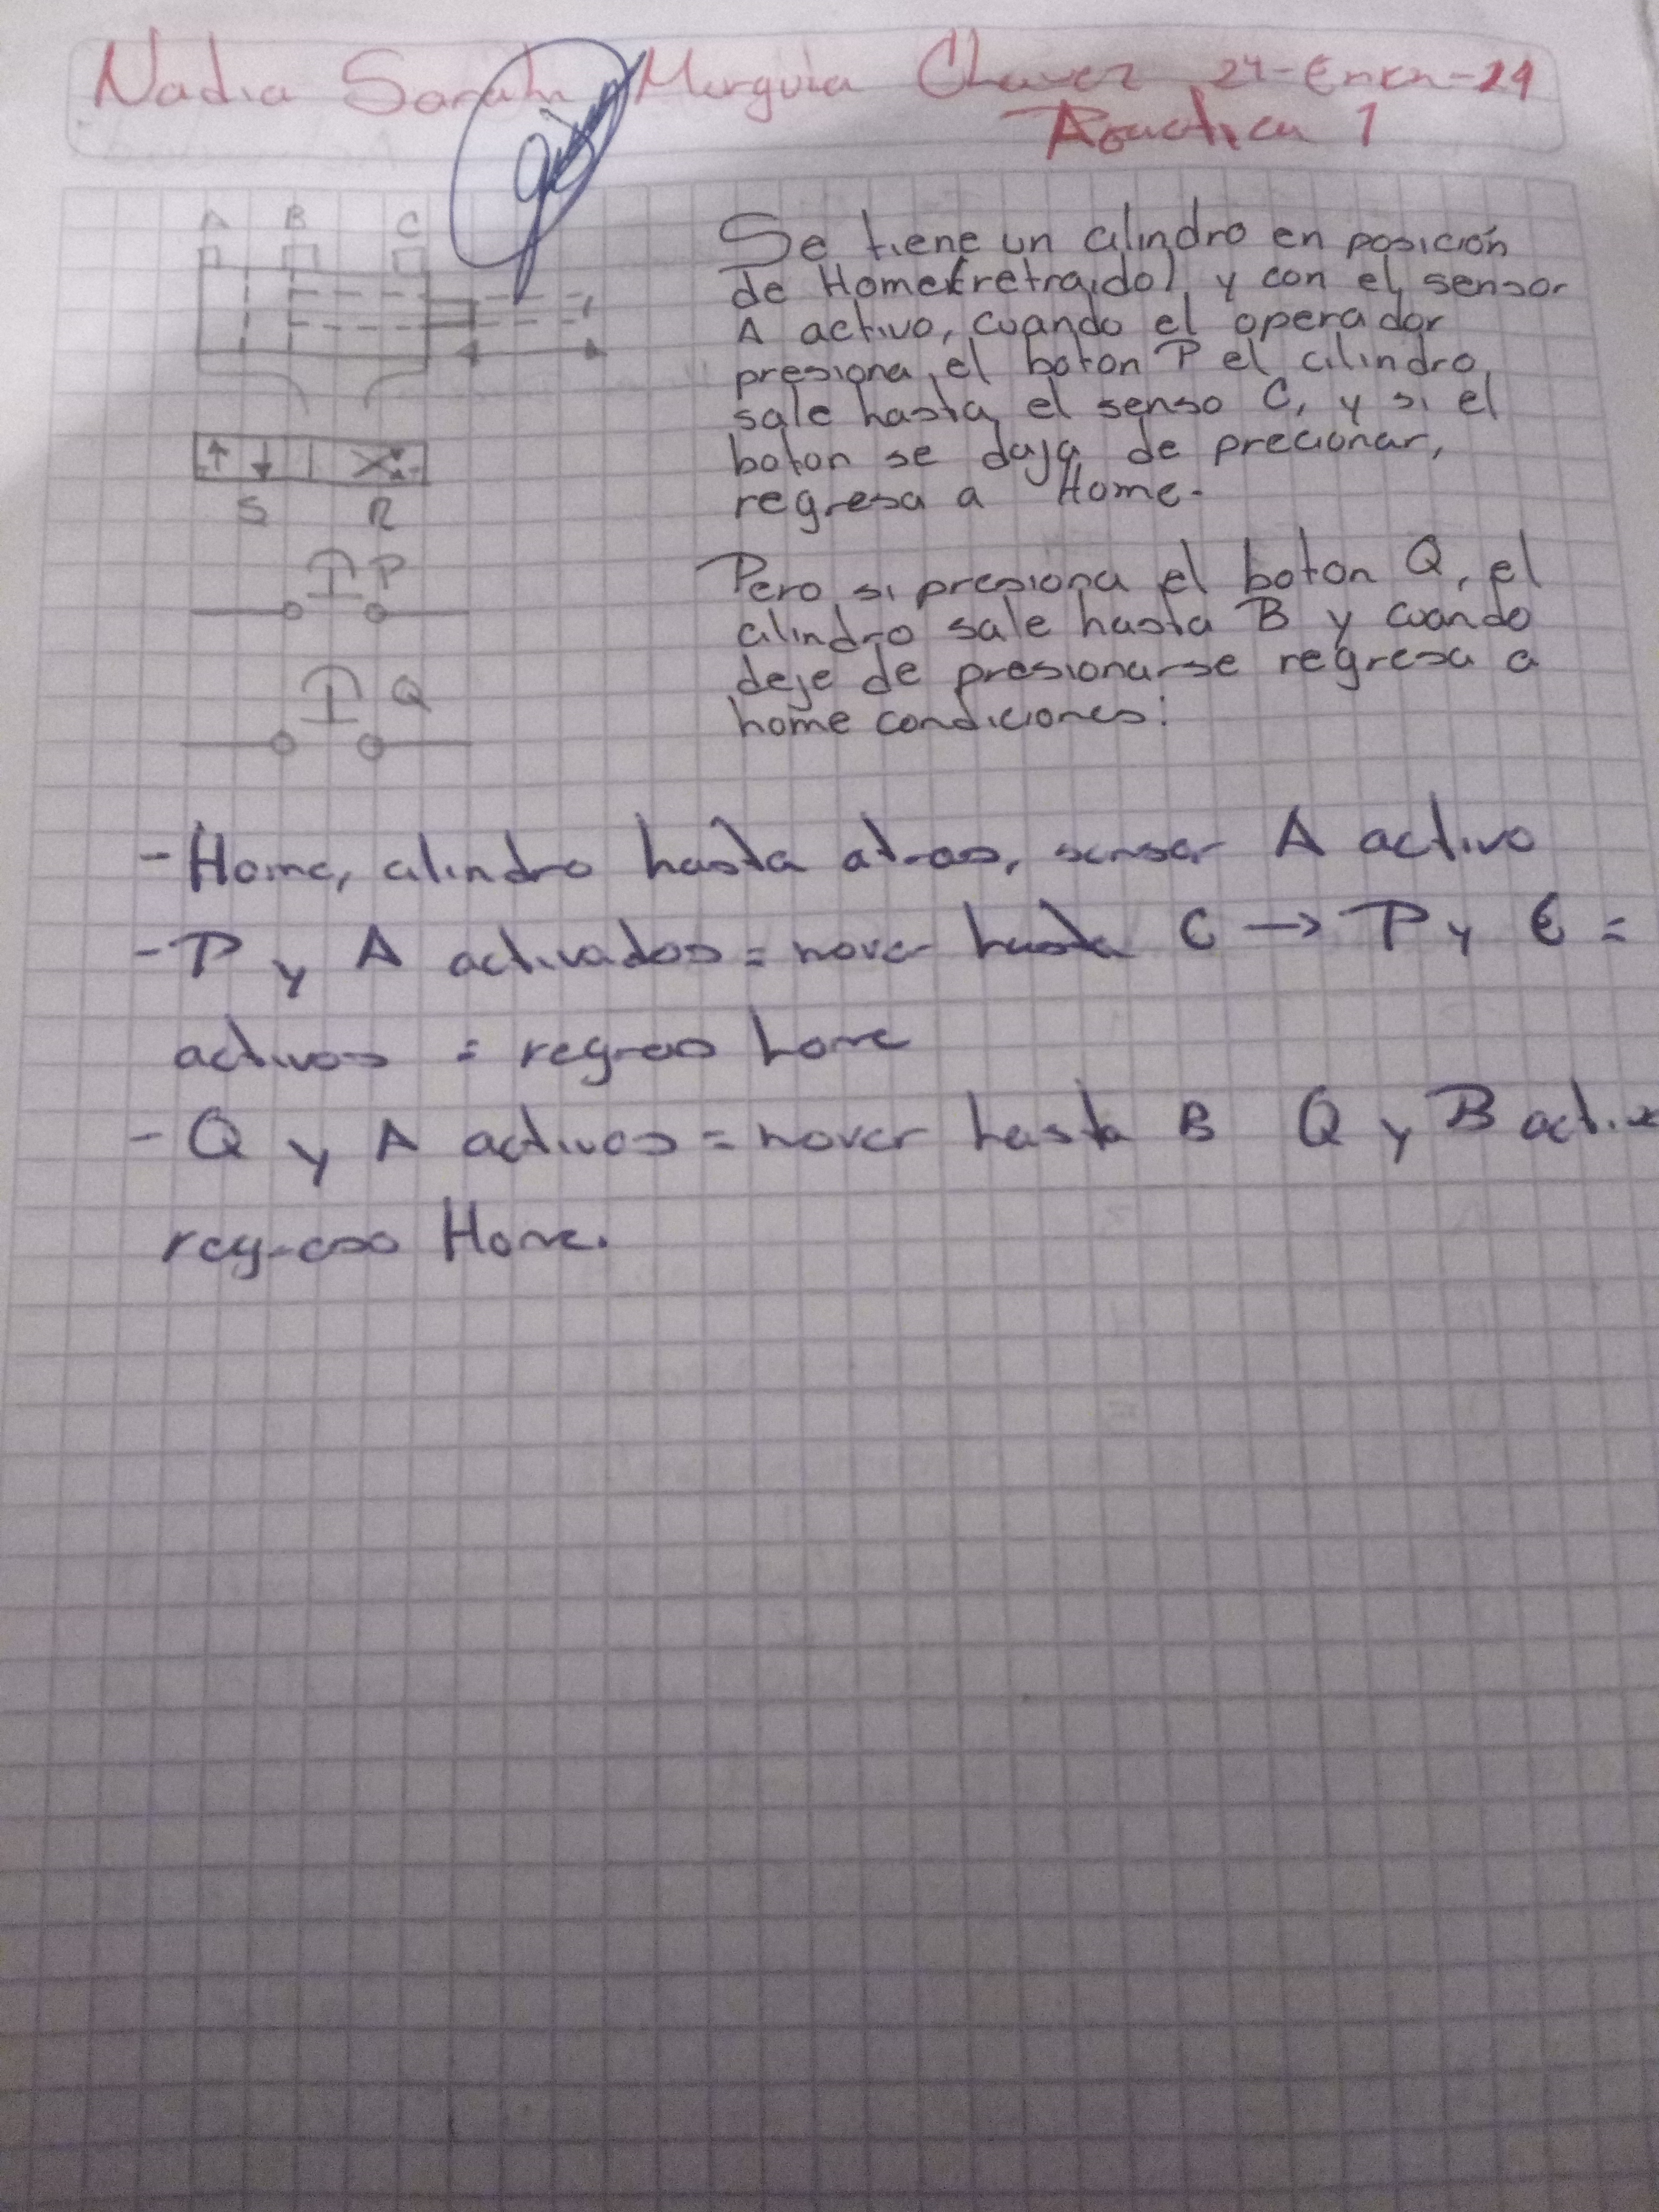 Nadia Sarahi Murguia Chavez 24-Enero-24
Practica 1
A B C
Se tiene un cilindro en posición
de Home(retraido) y con el sensor
A activo, cuando el operador
presiona el boton P el cilindro
sale hasta el senso C, y si el
boton se daja de precionar,
regresa a Home.
S R
P
Pero si presiona el boton Q, el
cilindro sale hasta B y cuando
deje de presionarse regresa a
home condiciones:
Q
- Home, cilindro hasta atras, sensor A activo
- P y A activados = mover hasta C → P y C =
activos = regreso home
- Q y A activos = mover hasta B Q y B
regreso Home.